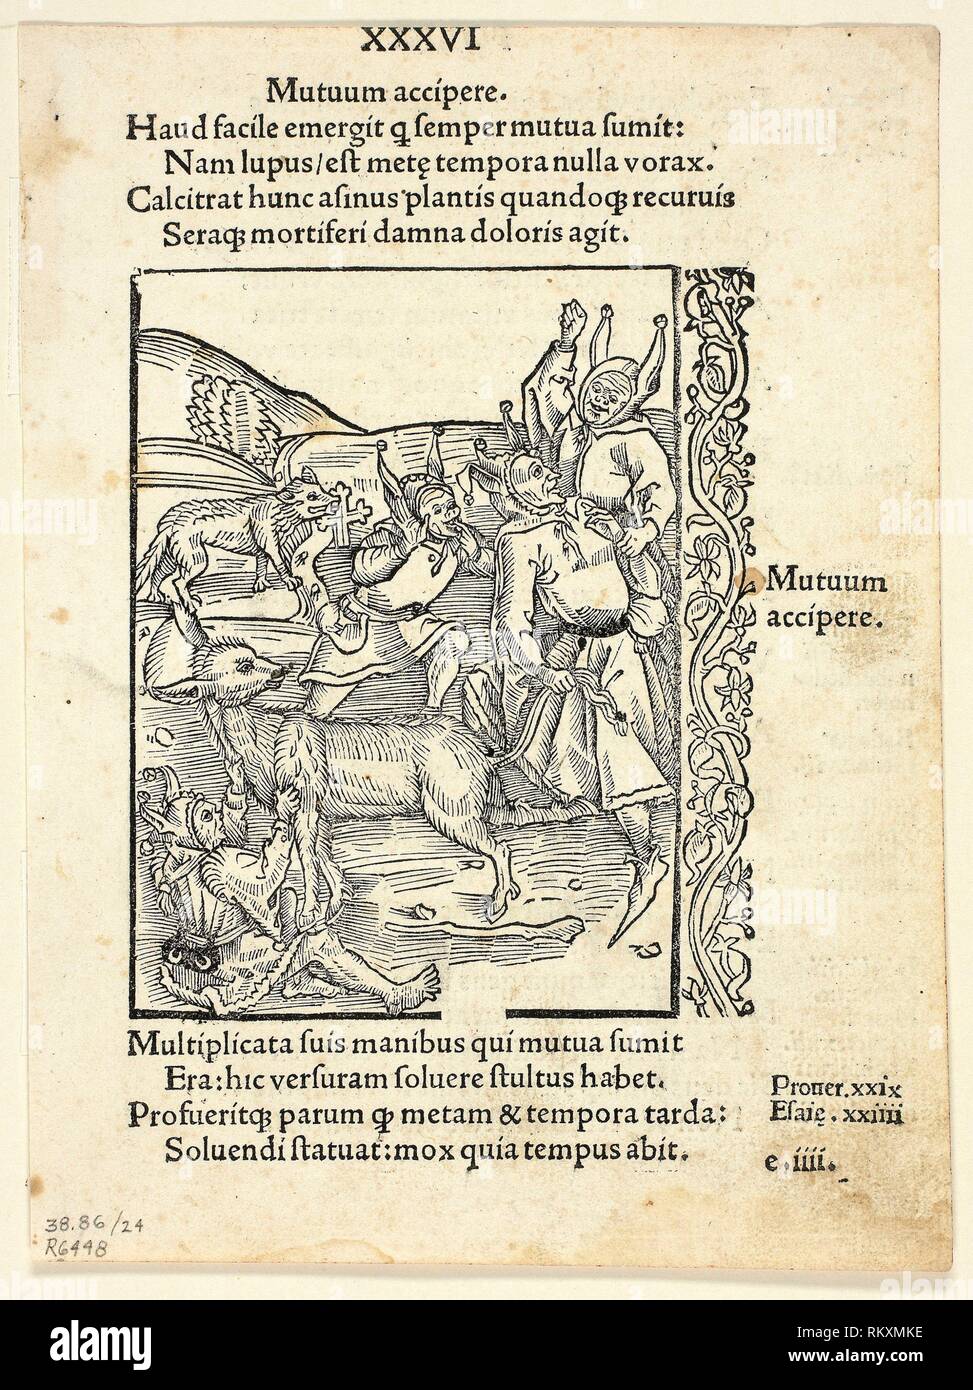 XXXVI
Mutuum accipere.
Haud facile emergit ꝗ ſemper mutua ſumit:
Nam lupus/eſt metę tempora nulla vorax.
Calcitrat hunc aſinus plantis quandoqꝫ recuruis
Seraqꝫ mortiferi damna doloris agit.
Mutuum
accipere.
Multiplicata ſuis manibus qui mutua ſumit
Era: hic verſuram ſoluere ſtultus habet.
Profueritqꝫ parum ꝙ metam & tempora tarda:
Soluendi ſtatuat: mox quia tempus abit.
Prouer. xxix
Eſaię. xxiiii
e. iiii.
38.86/24
R6448
alamy
alamy
Image ID: RKXMKE
www.alamy.com